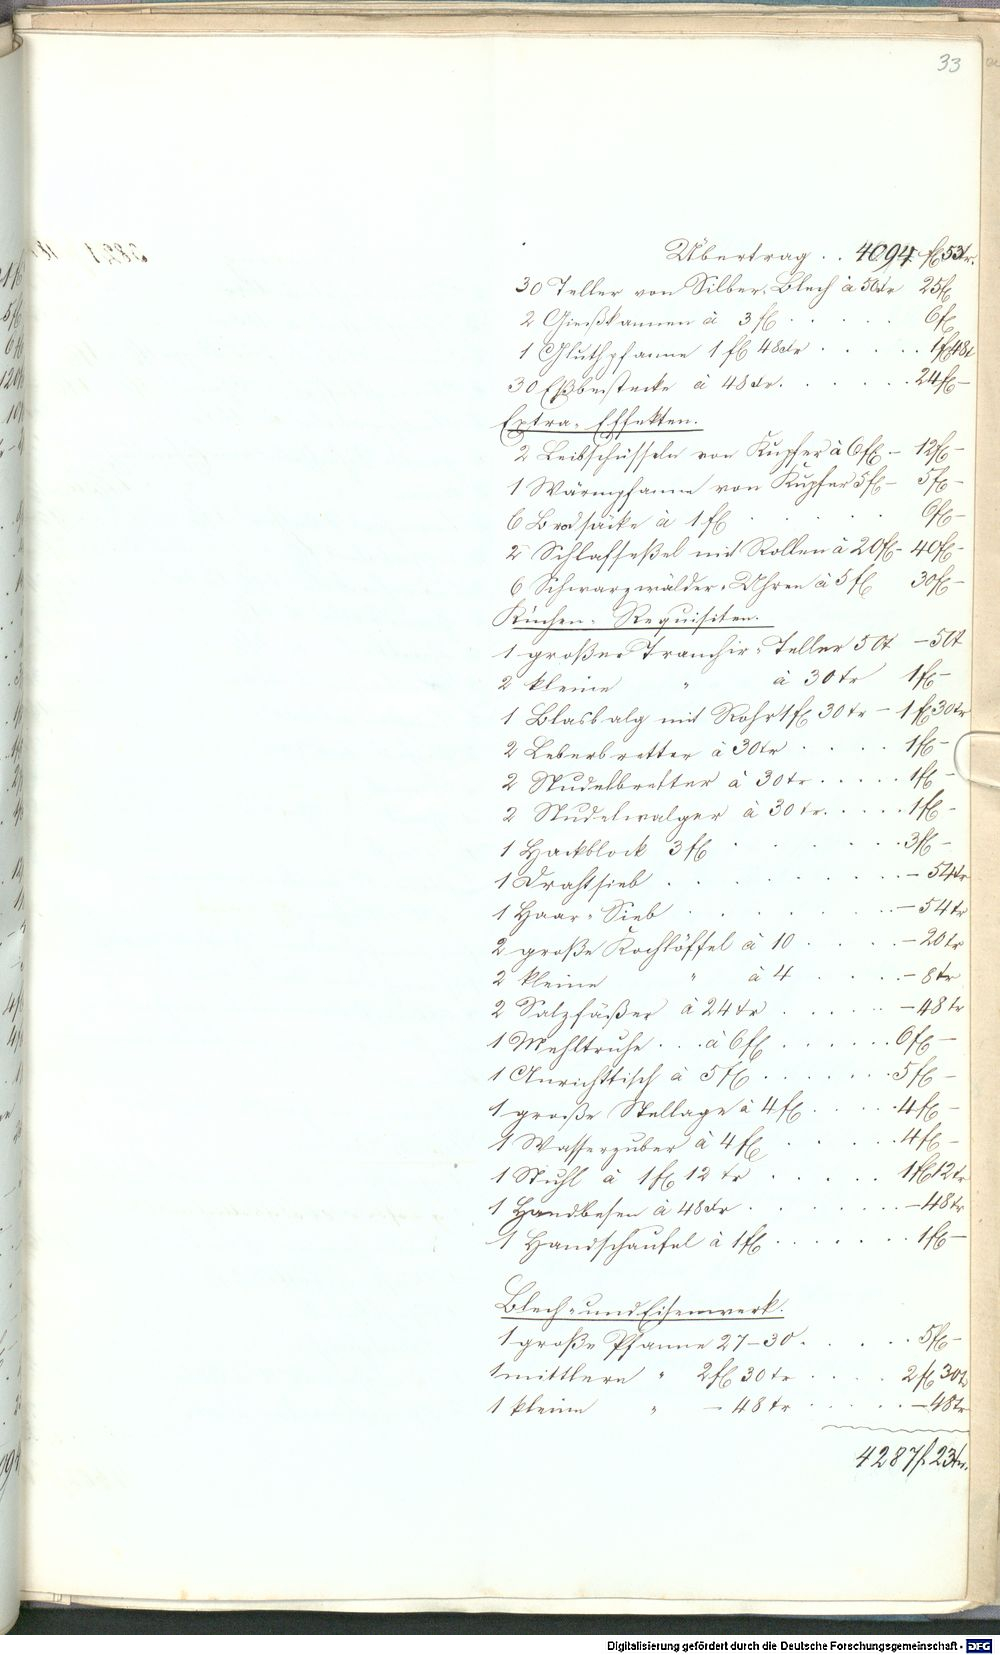 33
Übertrag . . 4094 fl 53 kr.
30 Teller von Silber-Blech à 50 kr 25 fl
2 Gießkannen à 3 fl . . . . . 6 fl
1 Gluthpfanne 1 fl 48 kr . . . . 1 fl 48
30 Eßbestecke à 48 kr. . . . . . . 24 fl –
Extra-Effekten.
2 Leibschüsseln von Kupfer à 6 fl – 12 fl –
1 Wärmpfanne von Kupfer 5 fl – 5 fl –
6 Brodsäcke à 1 fl . . . . . 6 fl –
2 Schlafseßel mit Rollen à 20 fl – 40 fl –
6 Schwarzwälder-Uhren à 5 fl 30 fl –
Küchen-Requisiten.
1 großer Tranchir-Teller 50 kr – 50 kr
2 kleine " à 30 kr 1 fl –
1 Blasbalg mit Rohr 1 fl 30 kr – 1 fl 30 kr
2 Leberbretter à 30 kr . . . . . 1 fl –
2 Nudelbretter à 30 kr . . . . . 1 fl –
2 Nudelwalger à 30 kr. . . . . 1 fl –
1 Hackblock 3 fl . . . . . . 3 fl –
1 Drahtsieb . . . . . . . . – 54 kr
1 Haar-Sieb . . . . . . . . – 54 kr
2 große Kochlöffel à 10 . . . . . – 20 kr
2 kleine " à 4 . . . . – 8 kr
2 Salzfäßer à 24 kr . . . . . . – 48 kr
1 Mehltruhe . . . à 6 fl . . . . . . 6 fl –
1 Anrichttisch à 5 fl . . . . . . . 5 fl –
1 große Stellage à 4 fl . . . . . 4 fl –
1 Wasserzuber à 4 fl . . . . . . 4 fl –
1 Stuhl à 1 fl 12 kr . . . . . 1 fl 12 kr
1 Handbesen à 48 kr . . . . . . . – 48 kr
1 Handschaufel à 1 fl . . . . . . . 1 fl –
Blech- und Eisenwerk.
1 große Pfanne 27–30 . . . . . 5 fl –
1 mittlere " 2 fl 30 kr . . . . . 2 fl 30 kr
1 kleine " – 48 kr . . . . . . – 48 kr
4287 fl 23 kr.
Digitalisierung gefördert durch die Deutsche Forschungsgemeinschaft - DFG